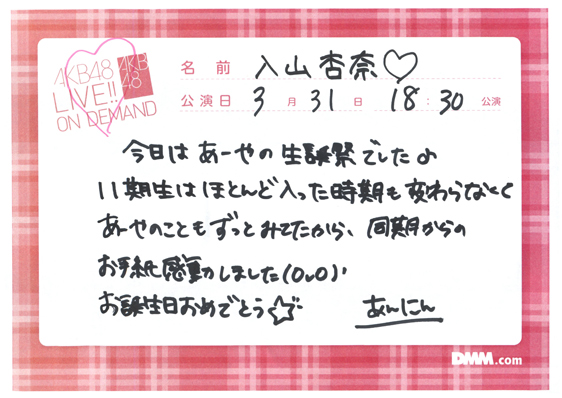 AKB48
LIVE!!
ON DEMAND
AKB
48
名前 入山杏奈♡
公演日 3月31日 18:30公演
今日はあーやの生誕祭でした♪
11期生はほとんど入った時期も変わらなくて
あーやのこともずっとみてたから、同期からの
お手紙感動しました(OvO)!
お誕生日おめでとう☆
あんにん
DMM.com